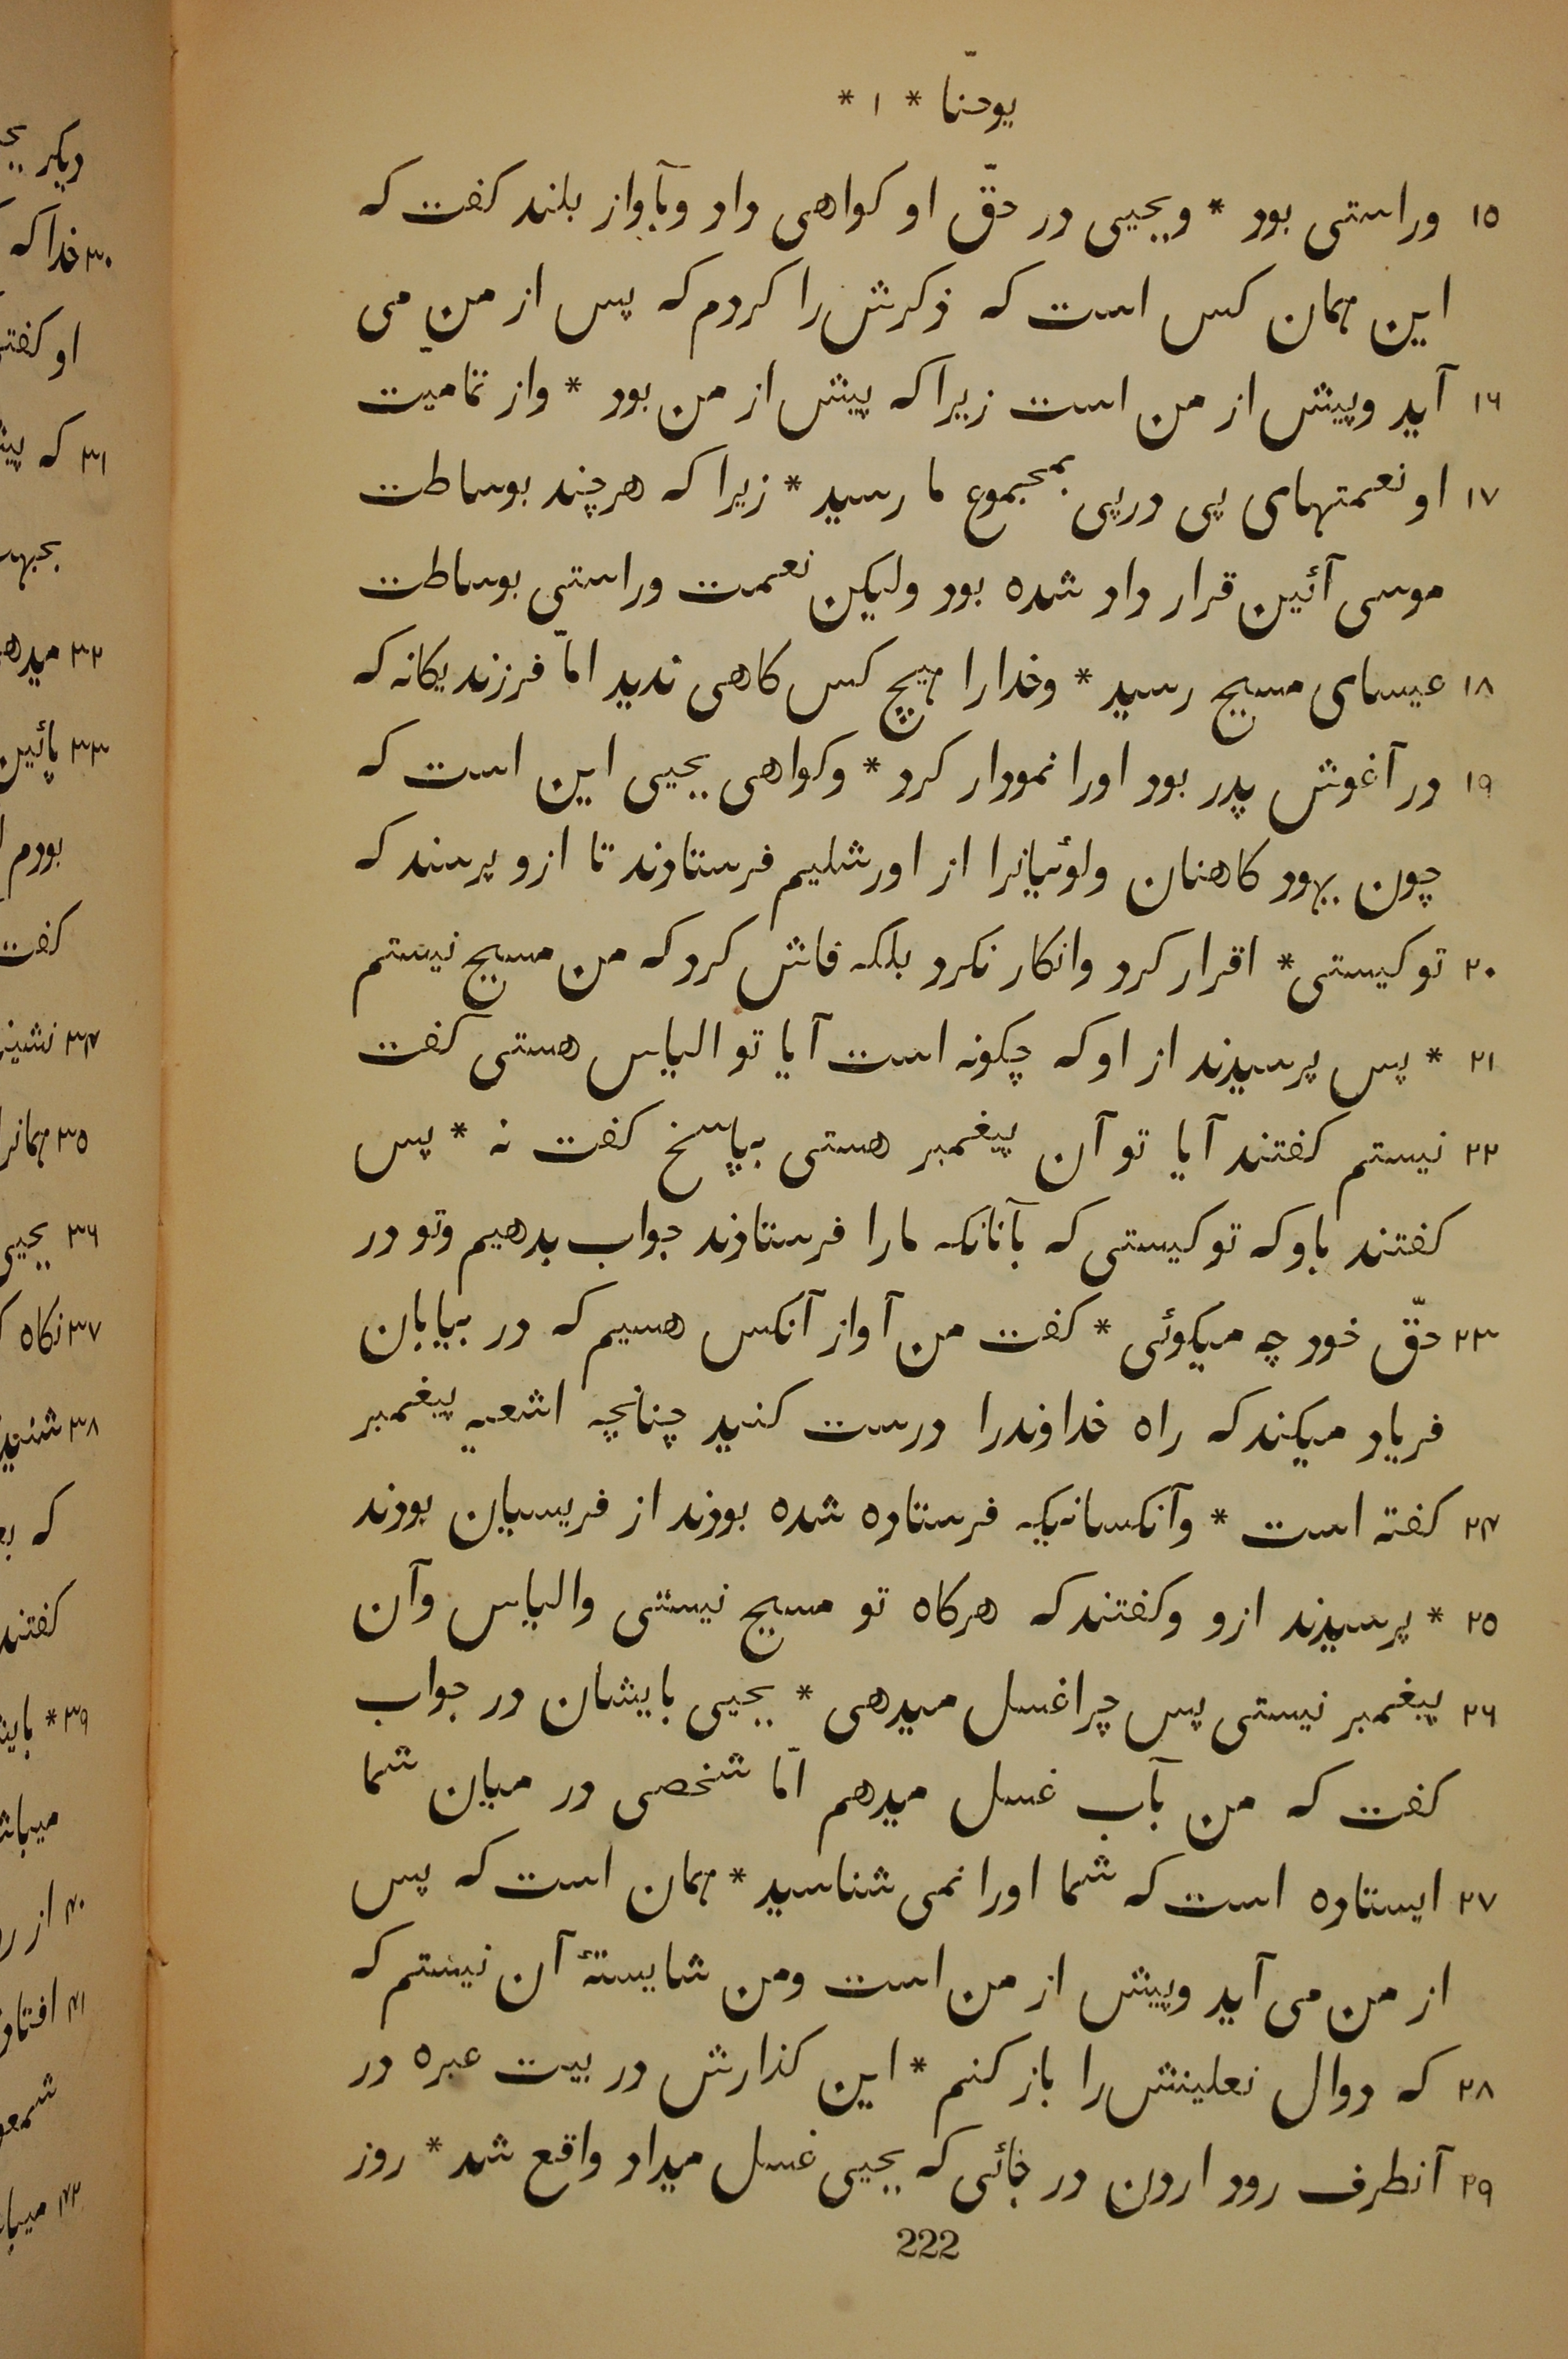 یوحنّا * ۱ *
۱۵ وراستی بود * ویحیی در حقّ او کواهی داد وبآواز بلند کفت که
این همان کس است که ذکرش را کردم که پس از من می
۱۶ آید وپیش از من است زیرا که پیش از من بود * واز تمامیت
۱۷ او نعمتهای پی درپی بمجموع ما رسید * زیرا که هرچند بوساطت
موسی آئین قرار داد شده بود ولیکن نعمت وراستی بوساطت
۱۸ عیسای مسیح رسید * وخدارا هیچ کس کاهی ندید امّا فرزند یکانه که
۱۹ در آغوش پدر بود اورا نمودار کرد * وکواهی یحیی این است که
چون یهود کاهنان ولوئیانرا از اورشلیم فرستادند تا ازو پرسند که
۲۰ تو کیستی * اقرار کرد وانکار نکرد بلکه فاش کرد که من مسیح نیستم
۲۱ * پس پرسیدند از او که چکونه است آیا تو الیاس هستی کفت
۲۲ نیستم کفتند آیا تو آن پیغمبر هستی بپاسخ کفت نه * پس
کفتند باو که تو کیستی که بآنانکه مارا فرستادند جواب بدهیم وتو در
۲۳ حقّ خود چه میکوئی * کفت من آواز آنکس هسیم که در بیابان
فریاد میکند که راه خداوندرا درست کنید چنانچه اشعیه پیغمبر
۲۴ کفته است * وآنکسانیکه فرستاده شده بودند از فریسیان بودند
۲۵ * پرسیدند ازو وکفتند که هرکاه تو مسیح نیستی والیاس وآن
۲۶ پیغمبر نیستی پس چرا غسل میدهی * یحیی بایشان در جواب
کفت که من بآب غسل میدهم امّا شخصی در میان شما
۲۷ ایستاده است که شما اورا نمی شناسید * همان است که پس
از من می آید وپیش از من است ومن شایستهٔ آن نیستم که
۲۸ که دوال نعلینش را باز کنم * این کذارش در بیت عبره در
۲۹ آنطرف رود اردن در جائی که یحیی غسل میداد واقع شد * روز
222